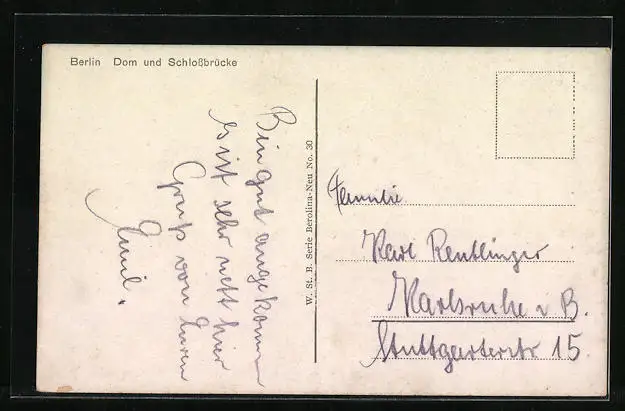 Berlin Dom und Schloßbrücke
Bin gut angekommen
es ist sehr nett hier
Gruß von Eurem
Emil.
W. St. B. Serie Berolina-Neu No. 30
Familie
Karl Reutlinger
Karlsruhe i B.
Stuttgarterstr 15